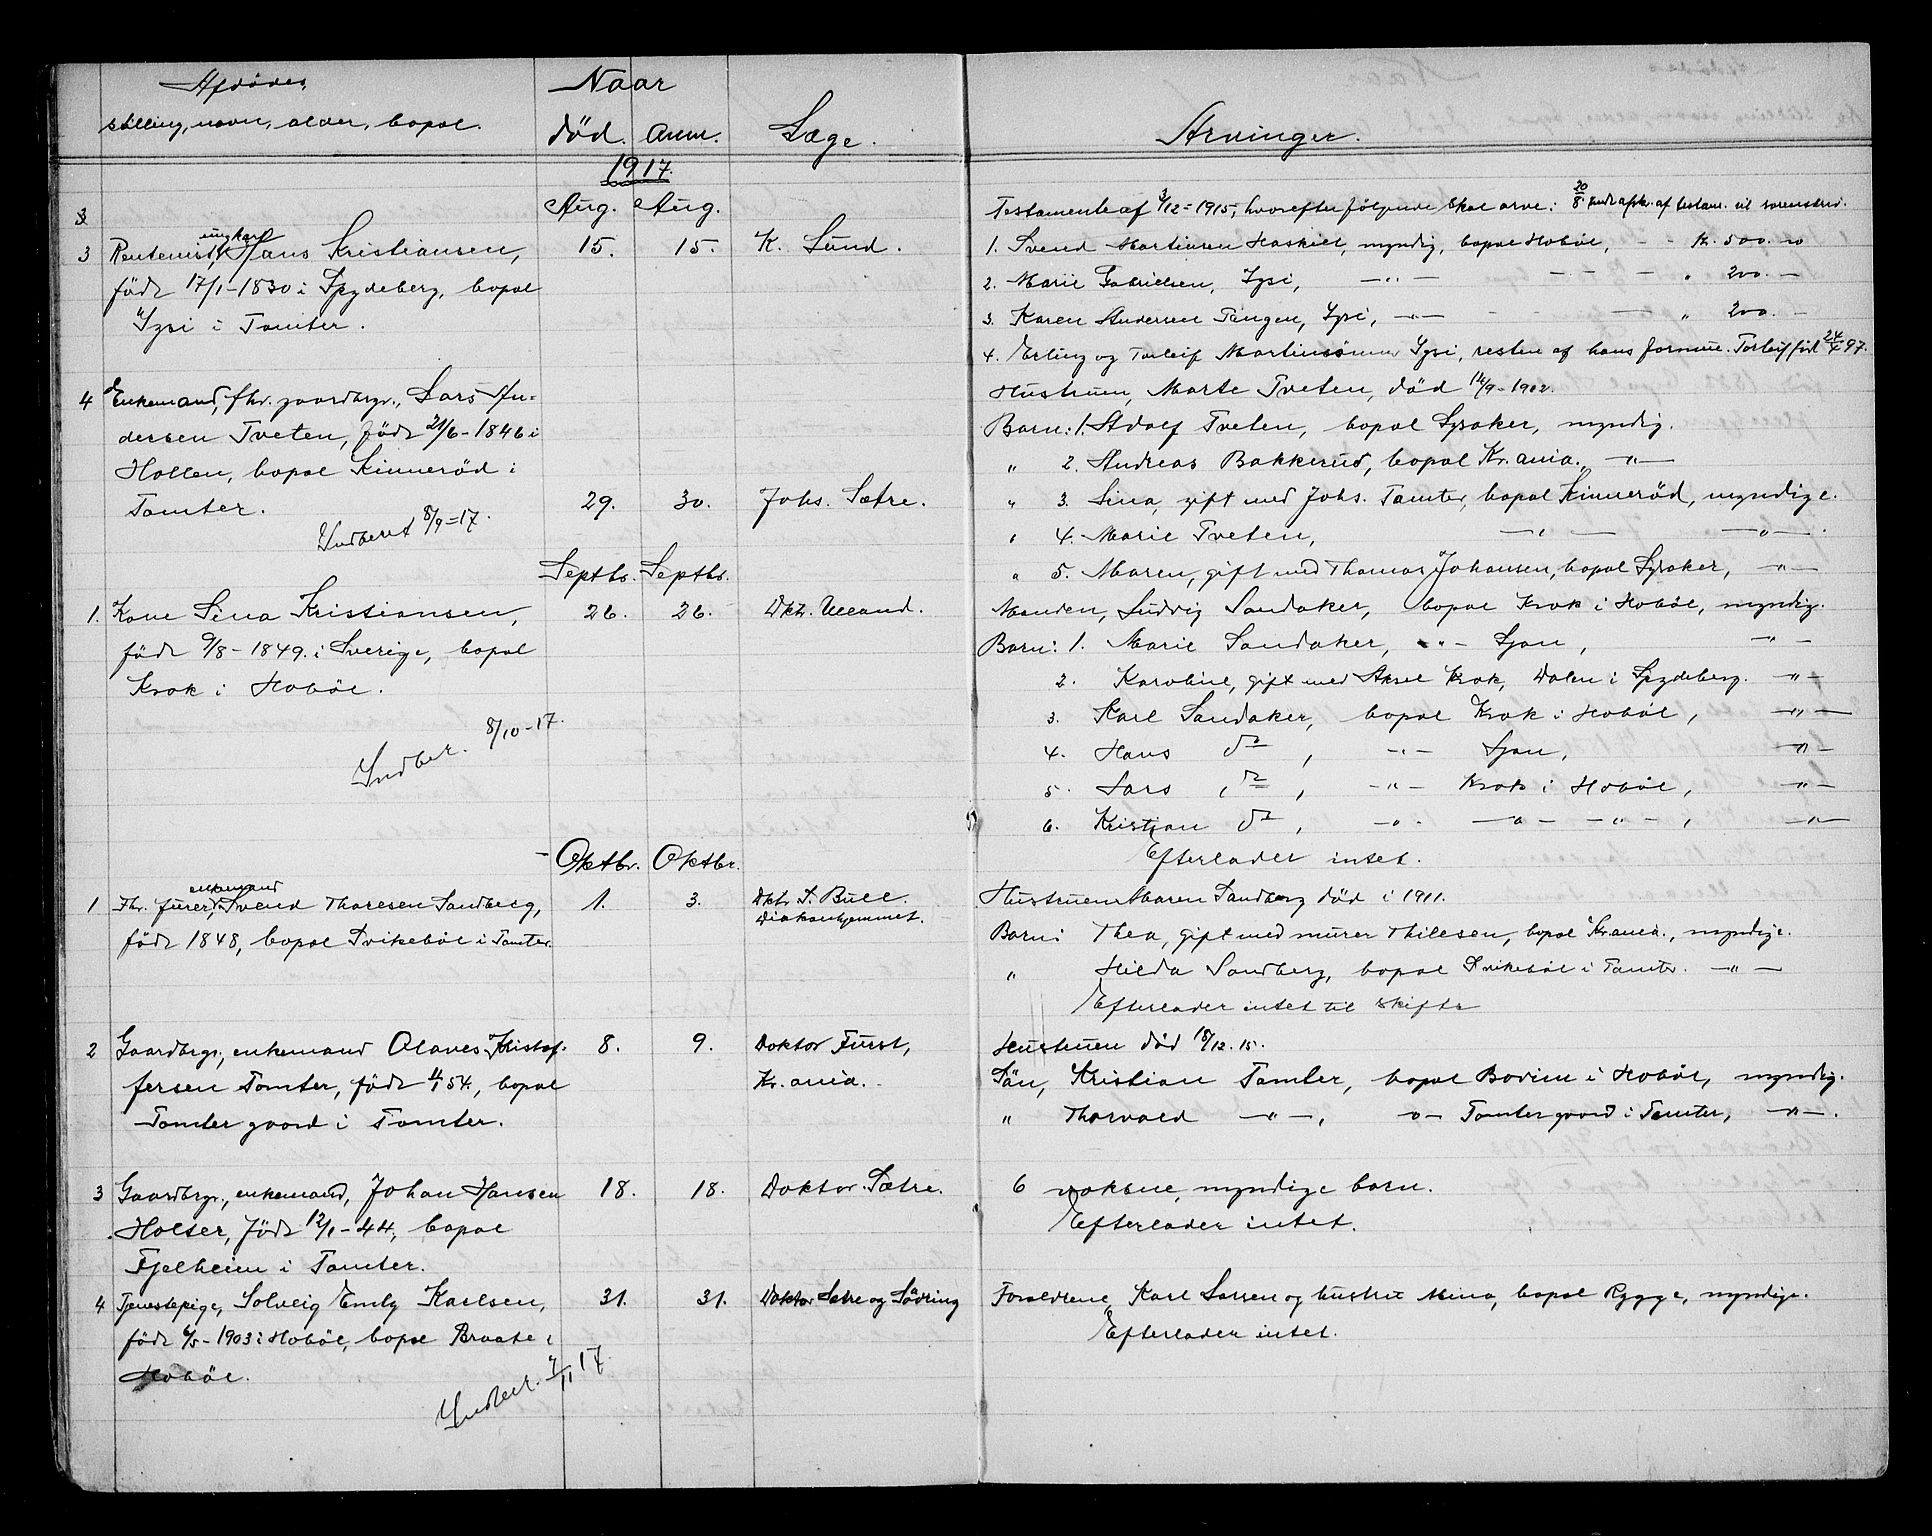 Afdødes
stilling, navn, alder, bopæl.
Naar
død. anm.
Læge.
Arvinger.
1917.
Aug. Aug.
3
3 Rentenist, ungkar Hans Kristiansen, 15. 15. K. Lund.
født 17/1-1830 i Spydeberg, bopæl
Lysi i Tomter.
Testamente af 3/12-1915, hvorefter følgende skal arve: 20/8 afskr. af testam. til sorenskriv.
1. Svend Martinsen Haskiel, myndig, bopæl Hobøl, - - Kr. 500.00
2. Marie Gabrielsen, Lysi, —"— - - - " 200.-
3. Karen Andersen Tangen, Lysi, —"— - - — " 200.-
4. Erling og Torleif Martinsønner Lysi, resten af hans formue. Torleif født 24/4 97.
4 Enkemand, fhv. gaardbrgr., Lars An-
dersen Tveten, født 21/6-1846 i
Hollen, bopæl Kinnerød i
Tomter. 29. 30. Johs. Sætre.
Indberet 8/9-17.
Hustruen, Marte Tveten, død 14/9-1902.
Barn: 1. Adolf Tveten, bopæl Lysaker, myndig.
" 2. Andreas Bakkerud, bopæl Kr.ania. —"—
" 3. Lina, gift med Johs. Tomter, bopæl Kinnerød, myndige.
" 4. Marie Tveten, —"— —"— .
" 5. Maren, gift med Thomas Johansen, bopæl Lysaker, —"—
Septbr. Septbr.
1. Kone Lina Kristiansen, 26. 26. Dkt. Ulland.
født 9/8-1849 i Sverige, bopæl
Krok i Hobøl.
Indber. 8/10-17.
Manden, Ludvig Sandaker, bopæl Krok i Hobøl, myndig.
Barn: 1. Marie Sandaker, —"— Ljan, —"—
2. Karoline, gift med Aksel Krok, Dalen i Spydeberg. —"—
3. Karl Sandaker, bopæl Krok i Hobøl, —"—
4. Hans do, —"— Ljan, —"—
5. Lars do, —"— Krok i Hobøl, —"—
6. Kristian do, —"— —"— —"—, —"—
Efterlader intet.
Oktbr. Oktbr.
1 Fhv. furer, enkemand Svend Thoresen Sandberg, 1. 3. Dkt. Bull.
født 1848, bopæl Svikebøl i Tomter. Diakonhjemmet.
Hustruen Maren Sandberg død i 1911.
Barn: Thea, gift med murer Thilesen, bopæl Kr.ania., myndige.
" Hilda Sandberg, bopæl Svikebøl i Tomter. —"—
Efterlader intet til skifte
2 Gaardbrgr., enkemand Olaves Kristof- 8. 9. Doktor Furst,
fersen Tomter, født 54, bopæl Kr.ania.
Tomter gaard i Tomter.
Hustruen død 18/12.15.
Søn, Kristian Tomter, bopæl Bovim i Hobøl, myndig.
" Thorvald —"—, —"— Tomter gaard i Tomter, —"—.
3 Gaardbrgr., enkemand, Johan Hansen 18. 18. Doktor Sætre.
Holter, født 12/1-44, bopæl
Fjelheim i Tomter.
6 voksne, myndige barn.
Efterlader intet.
4 Tjenestepige, Solveig Emly Karlsen, 31. 31. Doktor Sætre og Södring
født 6/5-1903 i Hobøl, bopæl Braate i
Hobøl.
Indber. 7/11 17.
Forældrene, Karl Larsen og hustru Mina, bopæl Rygge, myndige.
Efterlader intet.